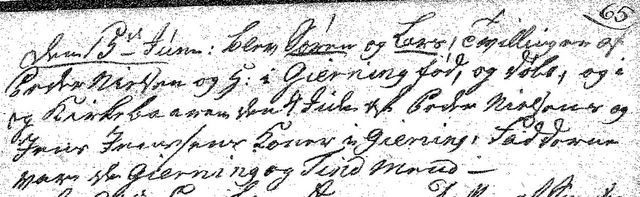 65
Dem 15de Junii: blev Søren og Lars, Tvillinger af
Peder Nielsen og H: i Gierning fød, og døbt, og i
og Kirke baaren den 4 Julii af Peder Nielsens og
Jens Jenssens Koner i Gierning: Fadderne
vare de Gierning og Tind Mænd —